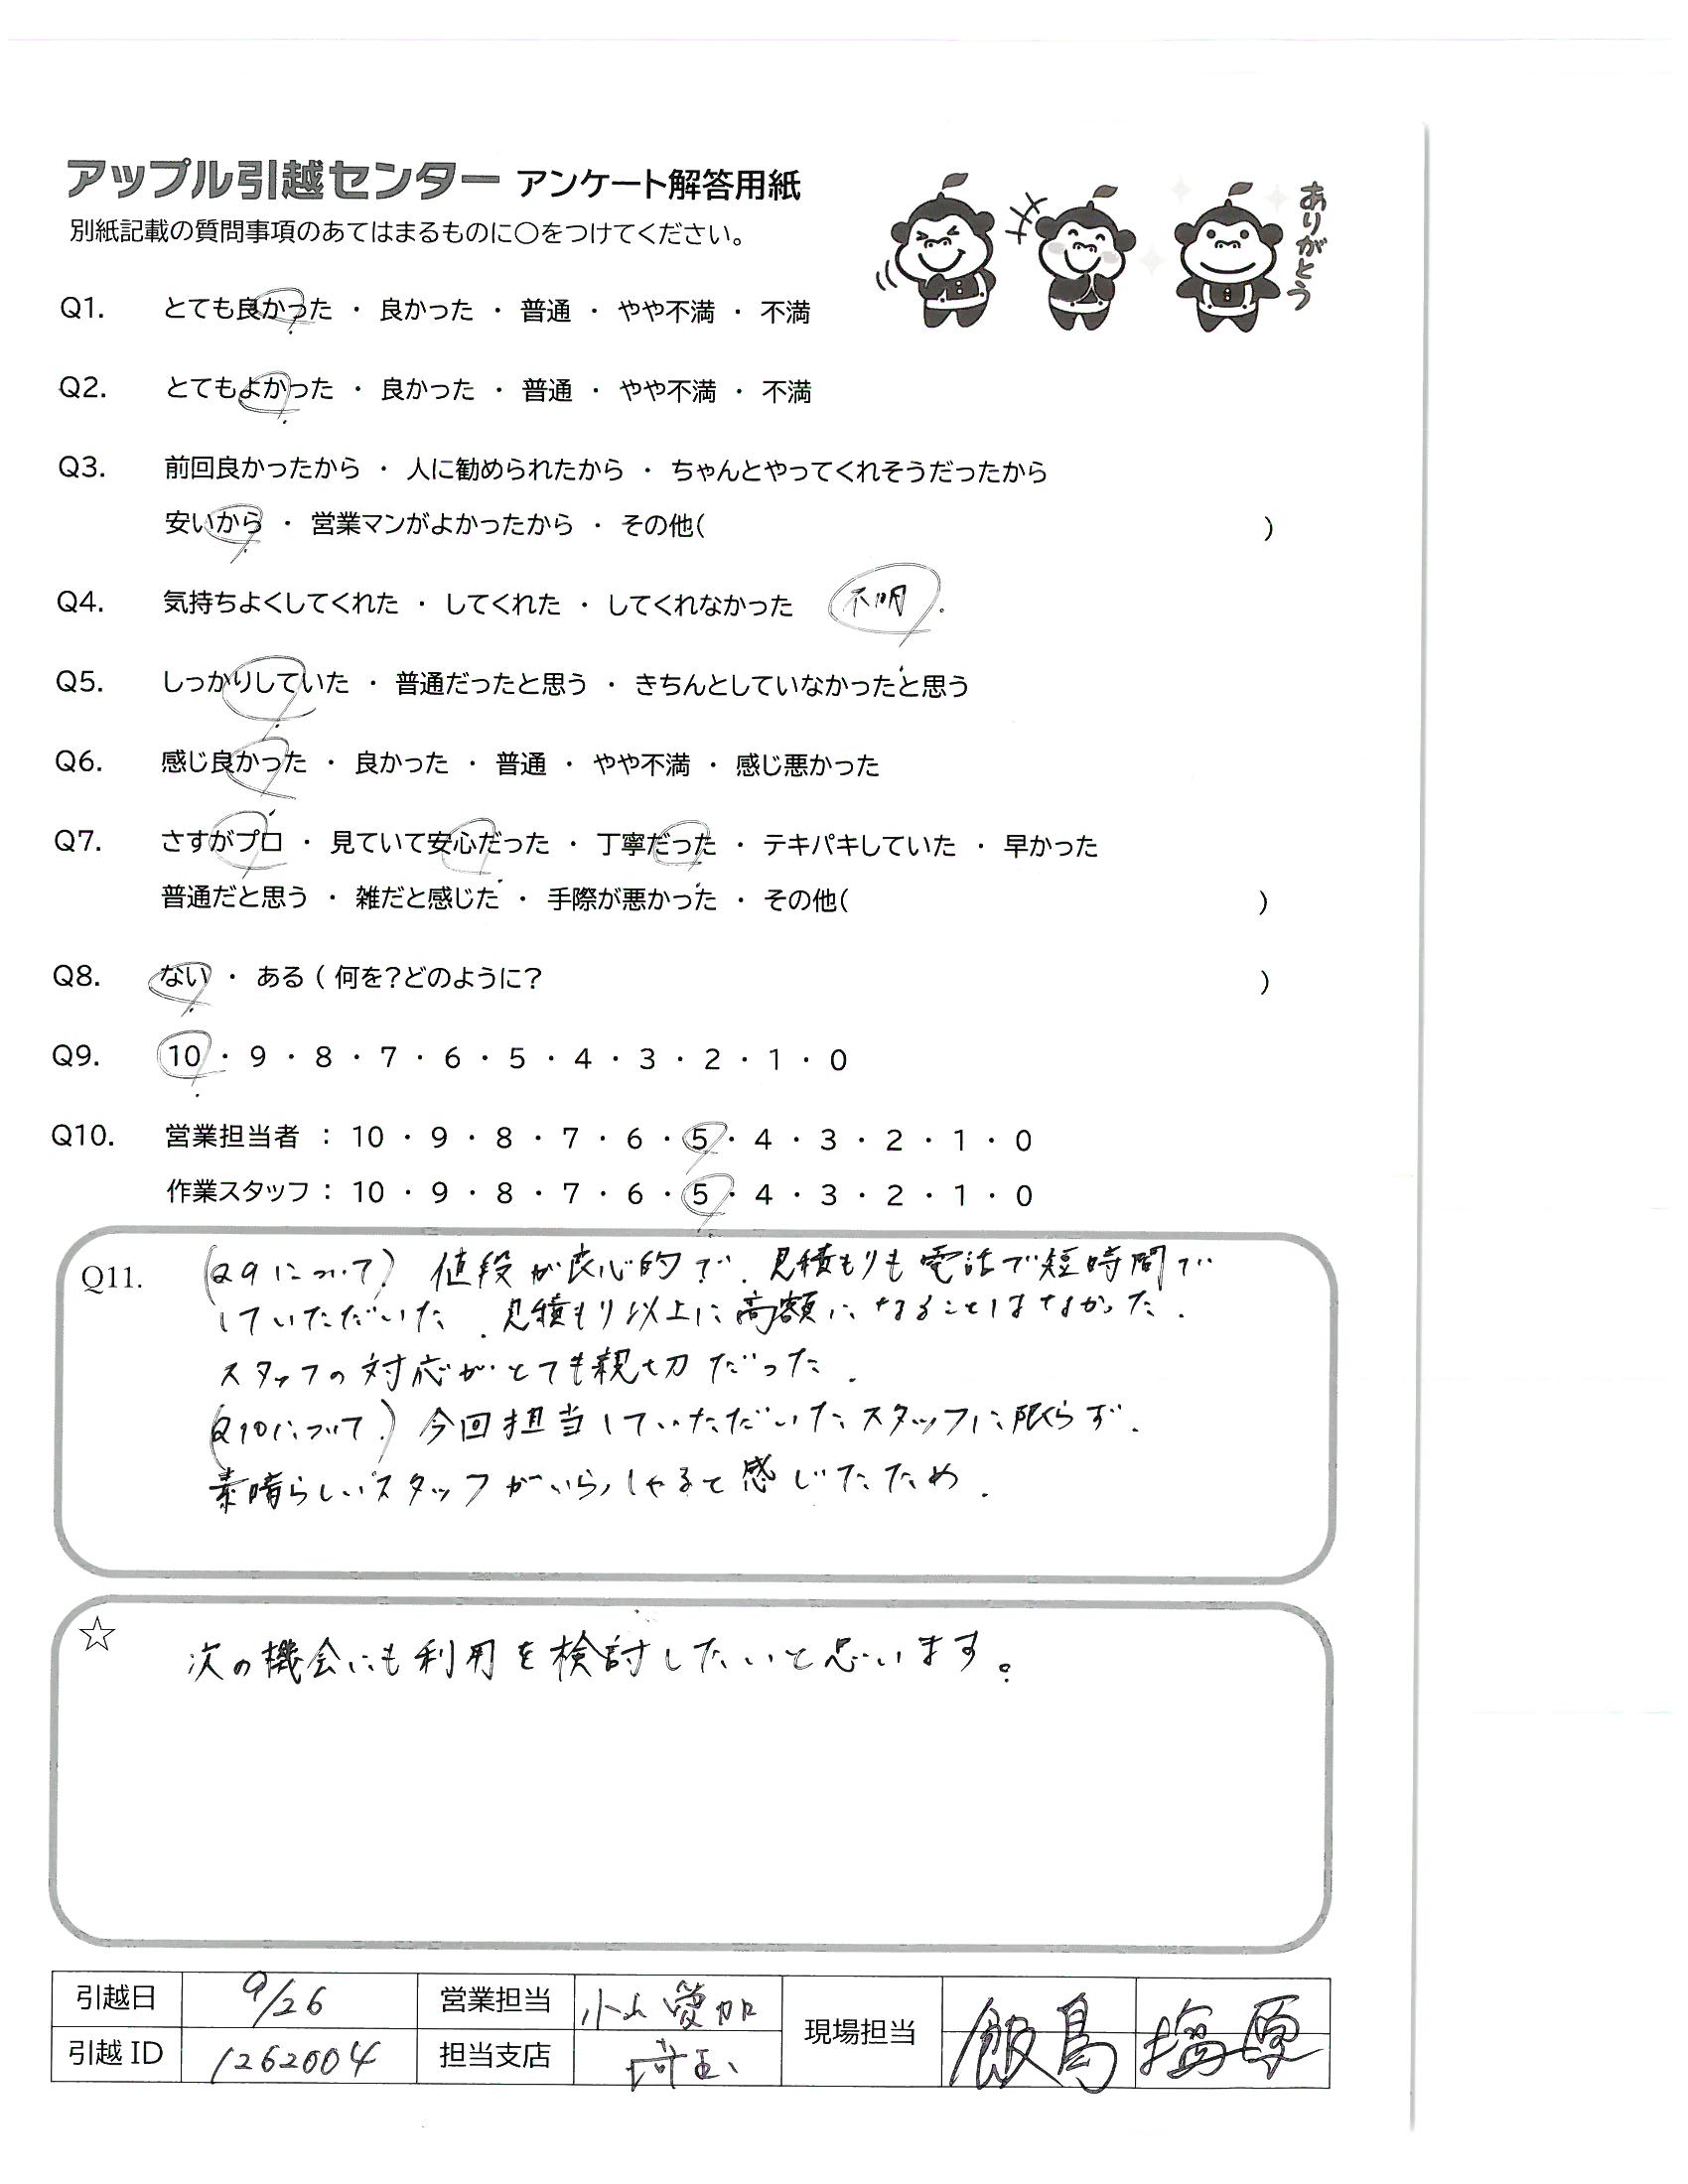 アップル引越センター アンケート解答用紙
別紙記載の質問事項のあてはまるものに○をつけてください。
ありがとう
Q1. とても良かった ・ 良かった ・ 普通 ・ やや不満 ・ 不満
Q2. とてもよかった ・ 良かった ・ 普通 ・ やや不満 ・ 不満
Q3. 前回良かったから ・ 人に勧められたから ・ ちゃんとやってくれそうだったから
安いから ・ 営業マンがよかったから ・ その他( )
Q4. 気持ちよくしてくれた ・ してくれた ・ してくれなかった 不明.
Q5. しっかりしていた ・ 普通だったと思う ・ きちんとしていなかったと思う
Q6. 感じ良かった ・ 良かった ・ 普通 ・ やや不満 ・ 感じ悪かった
Q7. さすがプロ ・ 見ていて安心だった ・ 丁寧だった ・ テキパキしていた ・ 早かった
普通だと思う ・ 雑だと感じた ・ 手際が悪かった ・ その他( )
Q8. ない ・ ある ( 何を?どのように? )
Q9. 10 ・ 9 ・ 8 ・ 7 ・ 6 ・ 5 ・ 4 ・ 3 ・ 2 ・ 1 ・ 0
Q10. 営業担当者 : 10 ・ 9 ・ 8 ・ 7 ・ 6 ・ 5 ・ 4 ・ 3 ・ 2 ・ 1 ・ 0
作業スタッフ : 10 ・ 9 ・ 8 ・ 7 ・ 6 ・ 5 ・ 4 ・ 3 ・ 2 ・ 1 ・ 0
Q11. (Q9について) 値段が良心的で、見積もりも電話で短時間で
していただいた、見積もり以上に高額になることはなかった.
スタッフの対応がとても親切だった.
(Q10について) 今回担当していただいたスタッフに限らず.
素晴らしいスタッフがいらっしゃると感じたため.
☆ 次の機会にも利用を検討したいと思います。
引越日 9/26 営業担当 小山愛加 現場担当 飯島 塩原
引越 ID 1262004 担当支店 埼玉